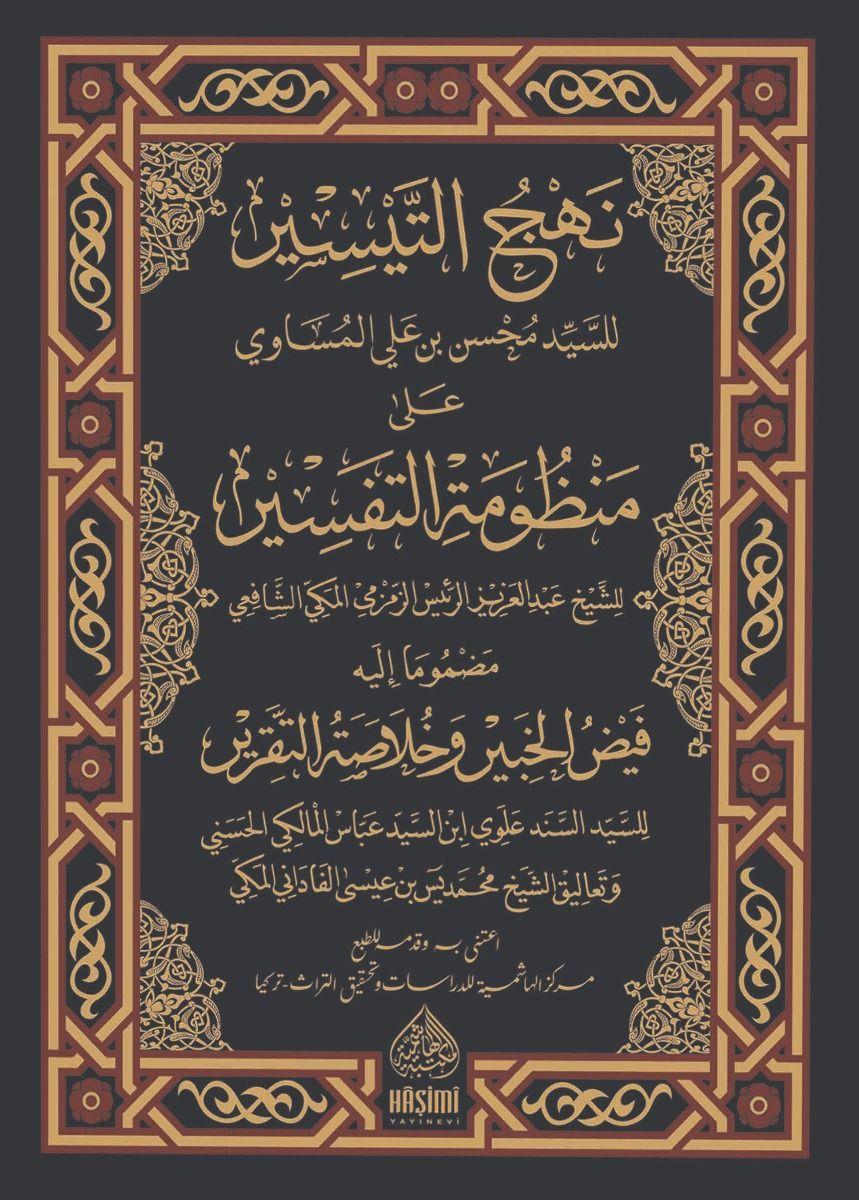 نَهْجُ التَّيْسِيْرِ
للسَّيِّد مُحْسن بن عَلي المُسَاوي
عَلىٰ
مَنْظُومَةِ التَفْسِيْرِ
لِلشَّيْخ عَبْد العَزِيْز الرئيس الزَمْزمي المكيّ الشَّافعي
مَضْمُومًا إِلَيه
فَيْضُ الخَبِيْرِ وَخُلَاصَةُ التَّقْرِيْرِ
لِلسَّيِّد السَّنَد عَلَوي ابْن السَيِّد عَبّاسْ المْالكي الحَسَني
وَتَعاليق الشَّيْخ محُمَّد يٰس بن عِيسىٰ الفَادَاني المَكيّ
اعتنى به وقدمه للطبع
مركز الهاشمية للدراسات وتحقيق التراث-تركيا
المكتبة الهاشمية
HÂŞİMÎ
YAYINEVİ